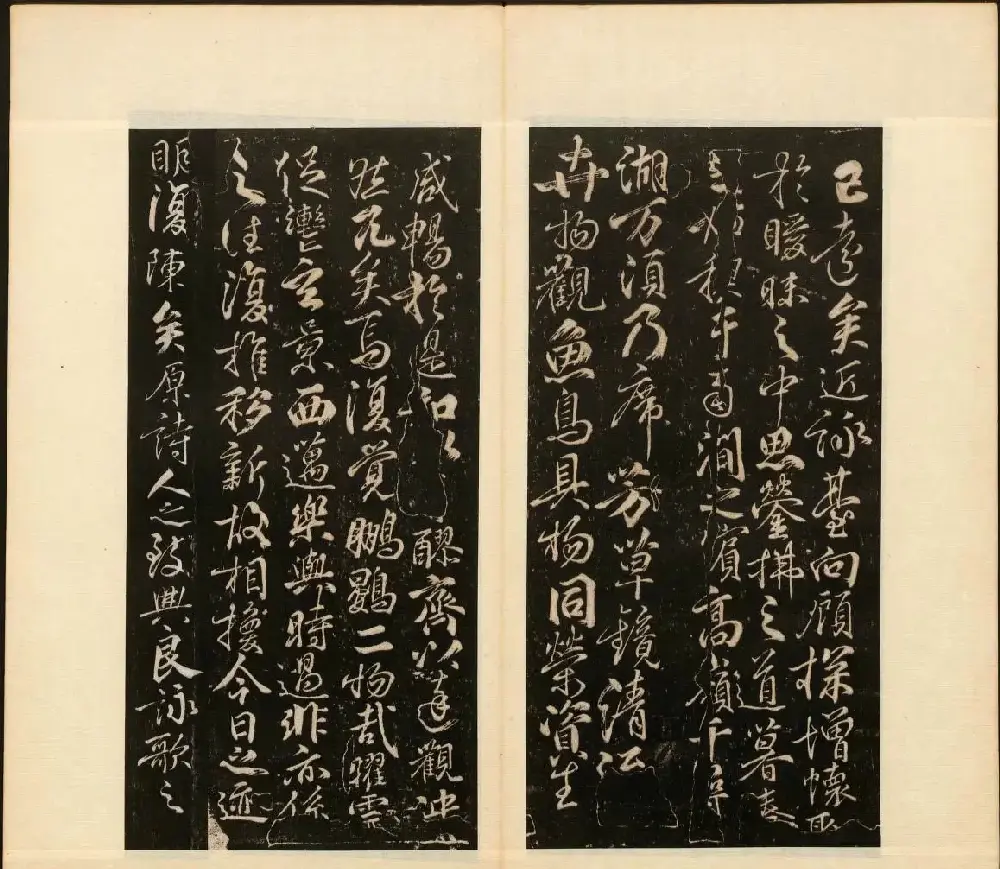 已遠矣近詠臺向顧探增懷聊
於曖昧之中思瑩拂之道暮春
之始禊于南澗之濱高嶺千尋
湖万頃乃席芳草鏡清流
卉物觀魚鳥具物同榮資生
咸暢於是和以醪齊以達觀泱
然兀矣焉復覺鵬鷃二物哉曜靈
促轡玄景西邁樂與時過悲亦係
之往復推移新故相換今日之迹
明復陳矣原詩人之致興良詠歌之